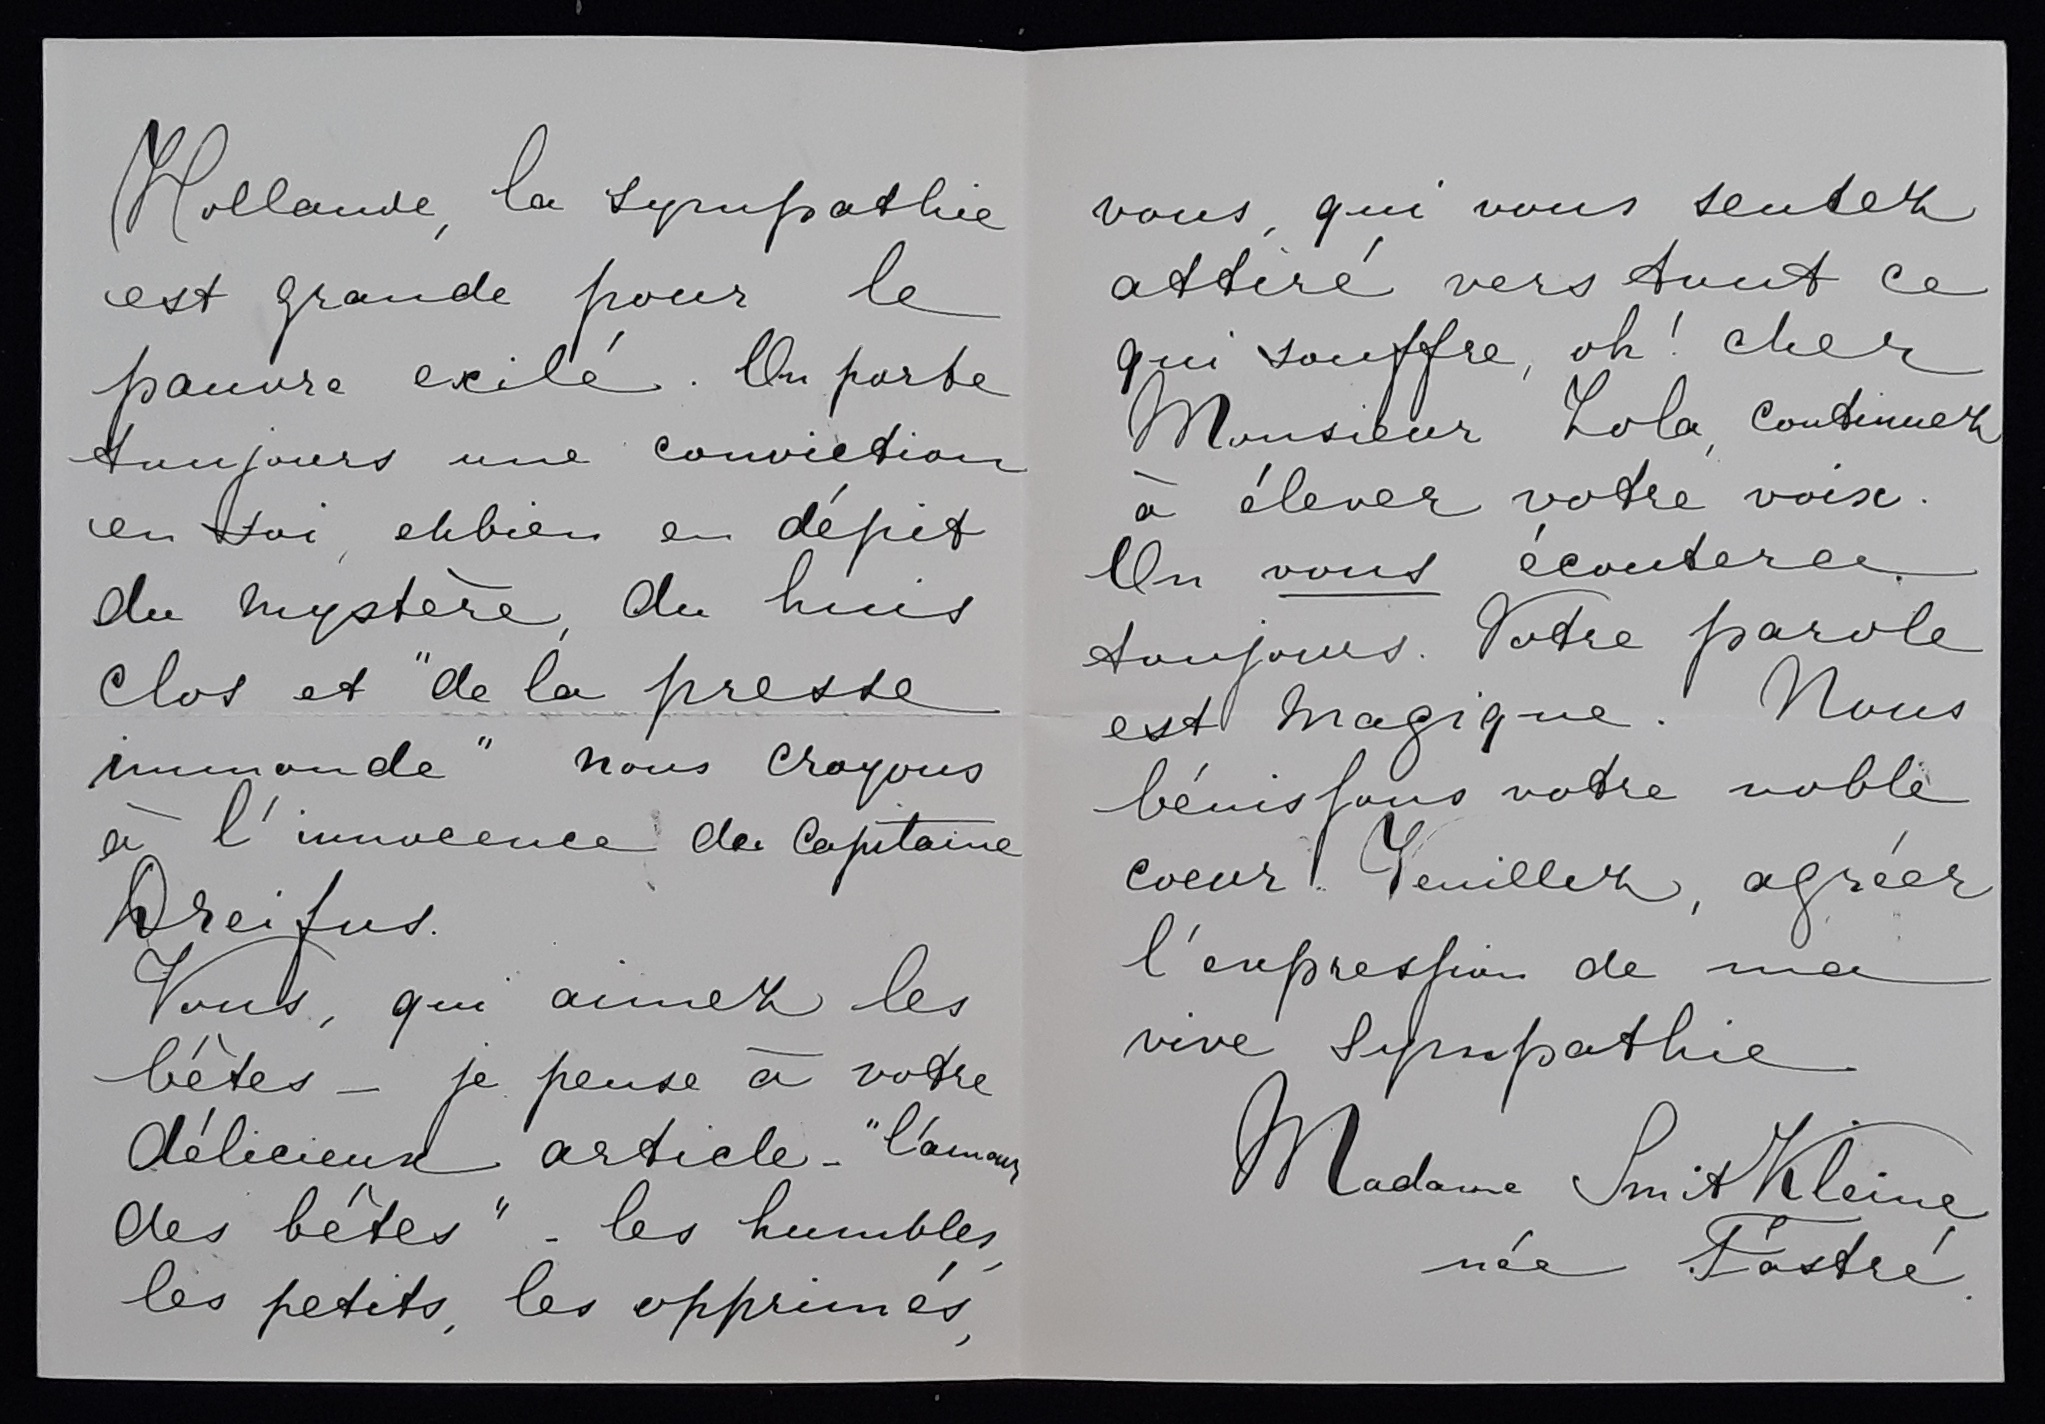 Hollande, la sympathie
est grande pour le
pauvre exilé. On porte
toujours une conviction
en soi, ehbien en dépit
du mystère, du huis
clos et "de la presse
immonde" nous croyons
à l'innocence du capitaine
Dreifus.
Vous, qui aimez les
bêtes – je pense à votre
délicieux article – "l'amour
des bêtes" – les humbles,
les petits, les opprimés,
vous, qui vous sentez
attiré vers tout ce
qui souffre, oh! cher
Monsieur Zola, continuez
à élever votre voix.
On vous écoutera
toujours. Votre parole
est magique. Nous
bénissons votre noble
coeur. Veuillez, agréer
l'expression de ma
vive sympathie
Madame Smit Kleine
née Fastré.